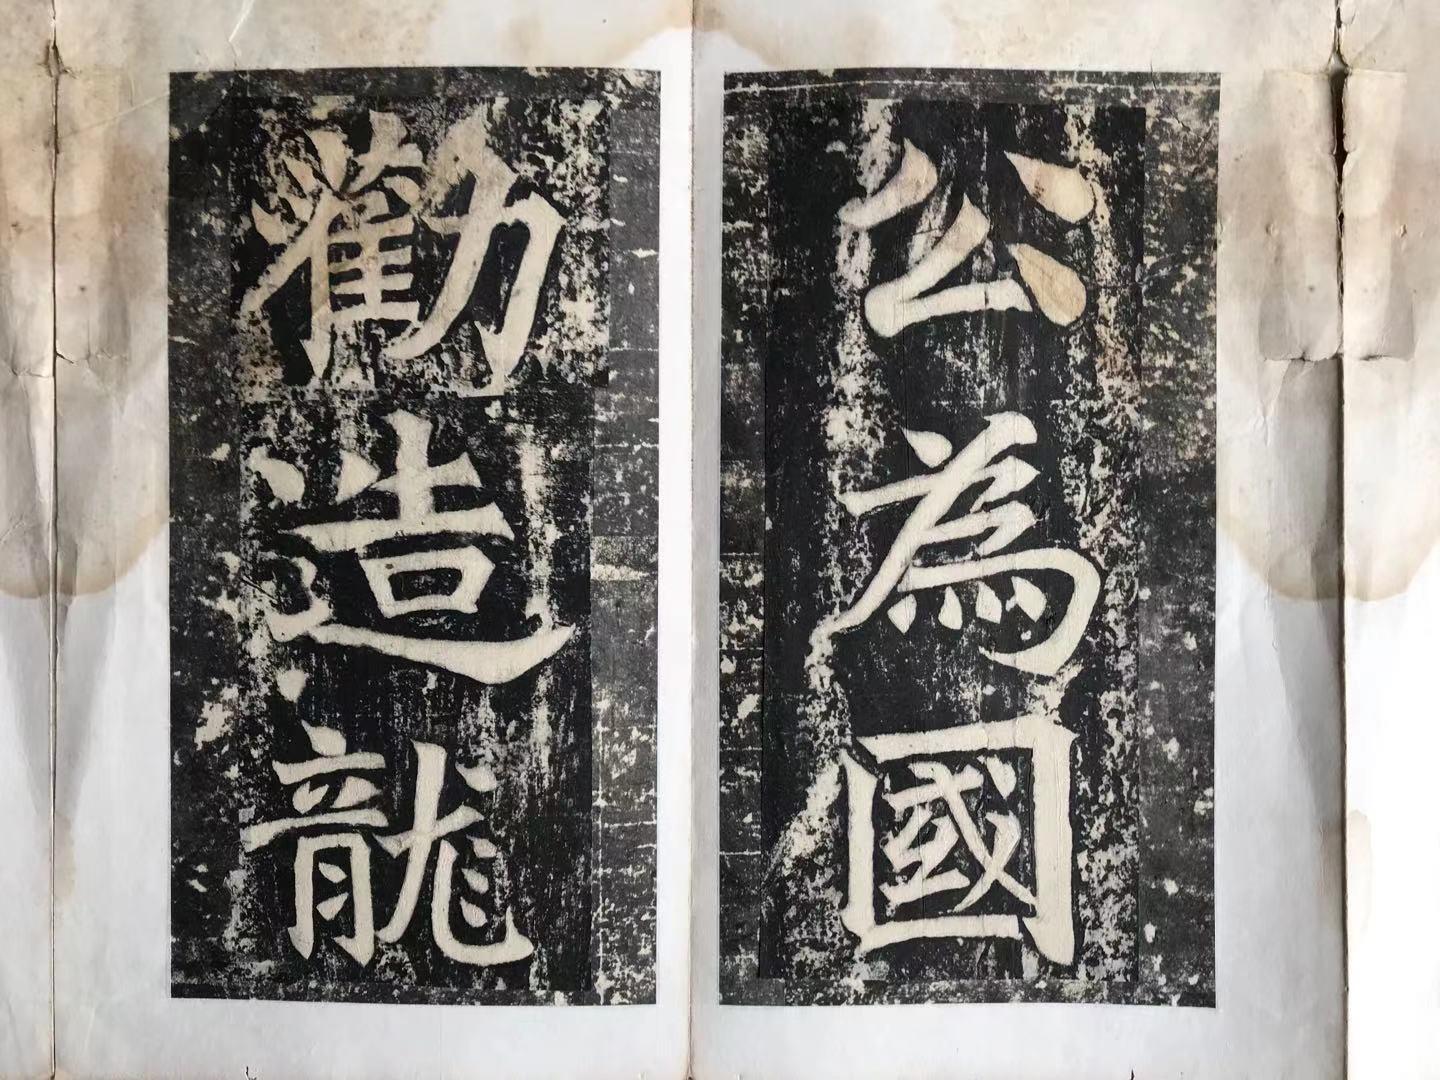 公為國
勸造龍